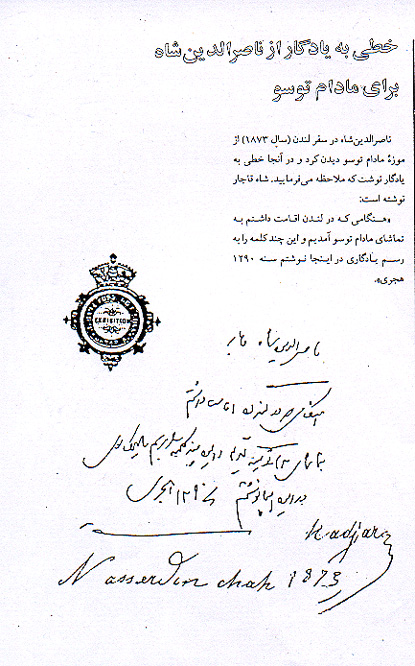 خطی به یادگار از ناصرالدین‌شاه
برای مادام توسو
ناصرالدین‌شاه در سفر لندن (سال ۱۸۷۳) از
موزهٔ مادام توسو دیدن کرد و در آنجا خطی به
یادگار نوشت که ملاحظه می‌فرمایید. شاه قاجار
نوشته است:
«هنگامی که در لندن اقامت داشتم به
تماشای مادام توسو آمدیم و این چند کلمه را به
رسم یادگاری در اینجا نوشتم سنه ۱۲۹۰
هجری».
EXHIBITION
ناصرالدین شاه قاجار
در لندن اقامت داشتم
در این نوشتم ۱۲۹۰ هجری
Kadjar
Nasserdin chah 1873